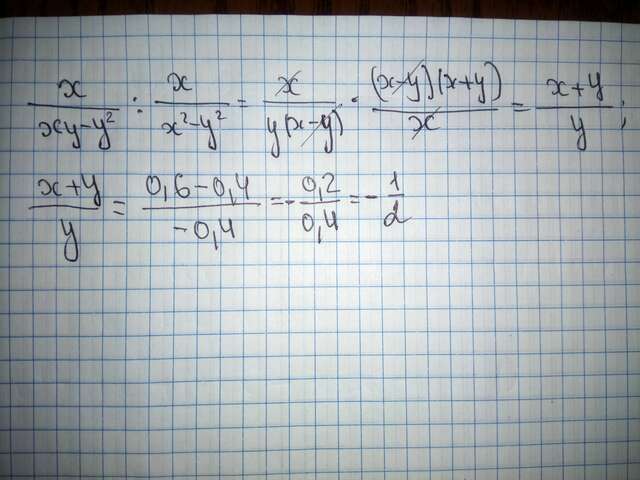 x/(xy-y²) : x/(x²-y²) = x/(y(x-y)) · ((x-y)(x+y))/x = (x+y)/y;
(x+y)/y = (0,6-0,4)/(-0,4) = -0,2/0,4 = -1/2